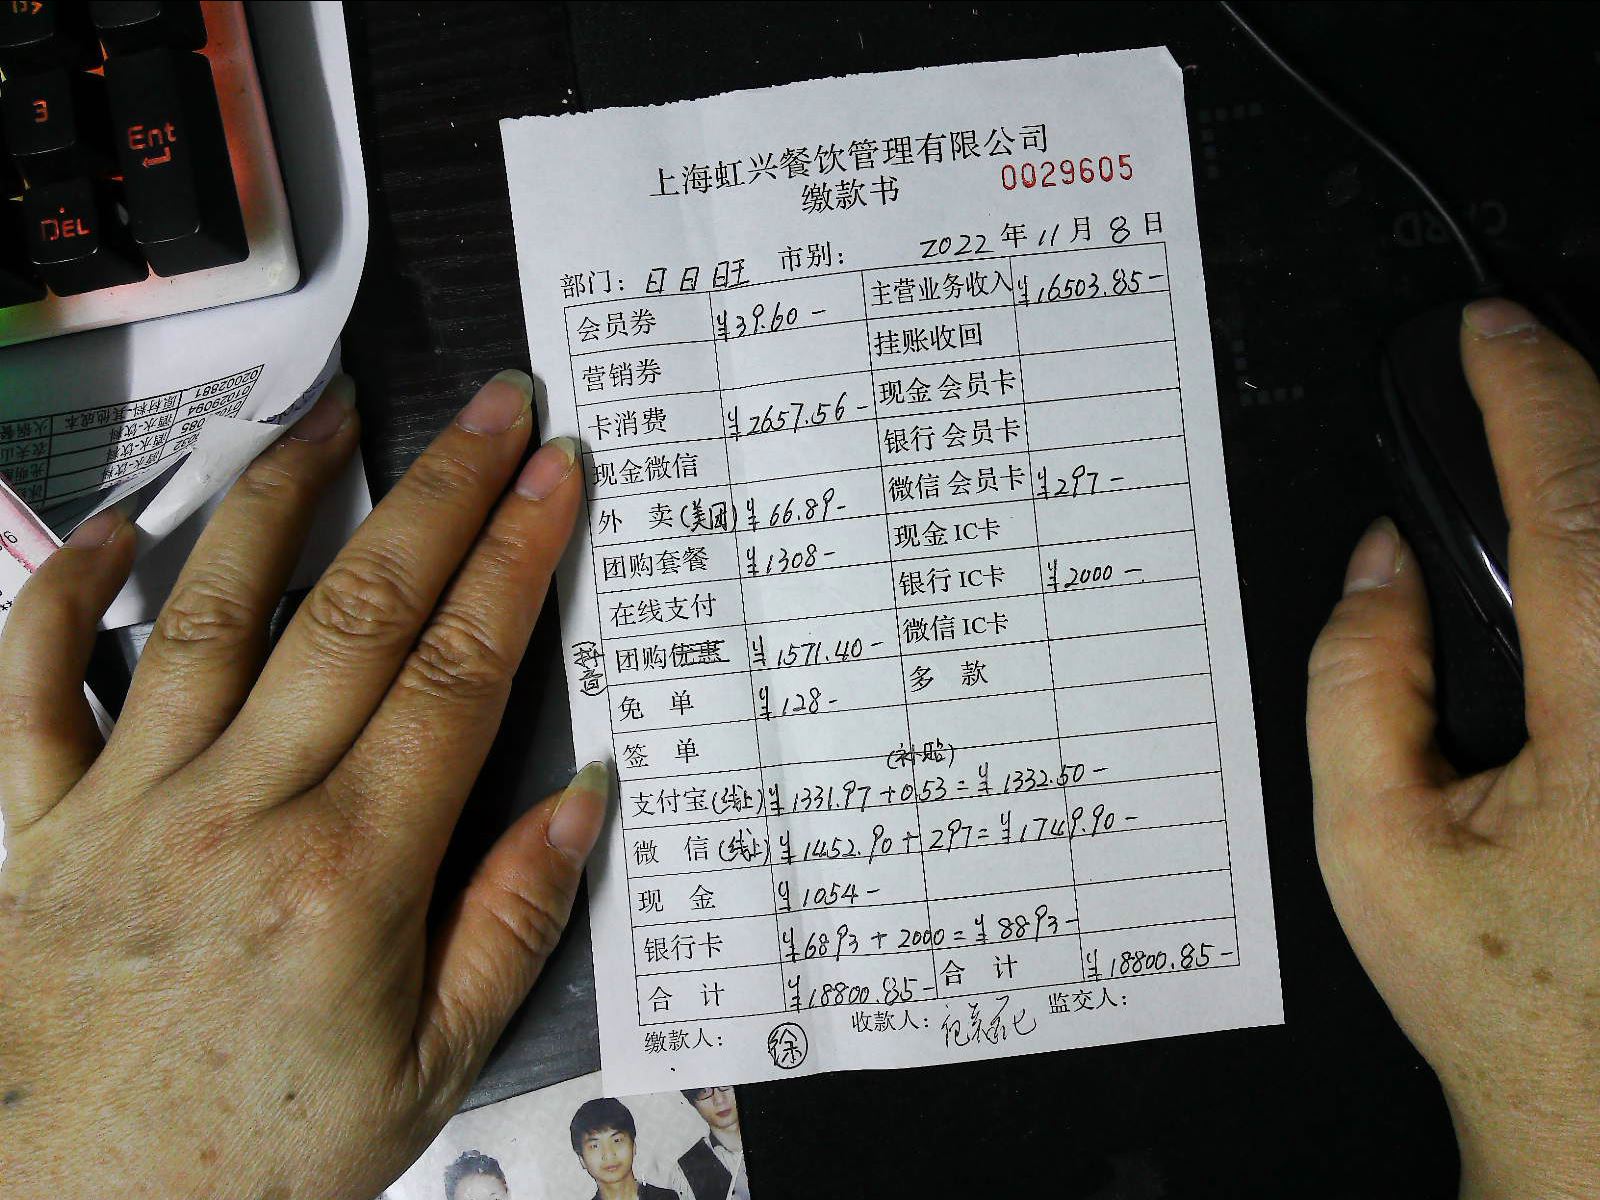 3
Ent
DEL
02002881 原材料-其他成本
01029094 酒水-饮料
酒水-饮料
上海虹兴餐饮管理有限公司
缴款书 0029605
部门：日日旺 市别： 2022年11月8日
会员券 ¥39.60- 主营业务收入 ¥16503.85-
营销券 挂账收回
卡消费 ¥2657.56- 现金 会员卡
现金微信 银行 会员卡
外 卖(美团) ¥66.89- 微信 会员卡 ¥297-
团购套餐 ¥1308- 现金 IC卡
在线支付 银行 IC卡 ¥2000-
(抖音) 团购优惠 ¥1571.40- 微信 IC卡
免 单 ¥128- 多 款
签 单
(补贴)
支付宝(线上) ¥1331.97+0.53=¥1332.50-
微 信(线上) ¥1452.90+297=¥1749.90-
现 金 ¥1054-
银行卡 ¥6893+2000=¥8893-
合 计 ¥18800.85- 合 计 ¥18800.85-
缴款人： 徐 收款人： 监交人：